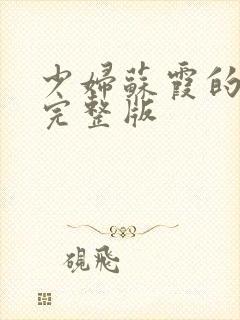 少婦蘇霞的
完整版
硯飛